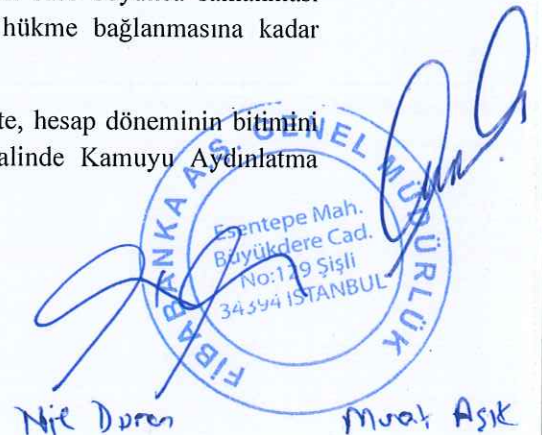 hükme bağlanmasına kadar
te, hesap döneminin bitimini
alinde Kamuyu Aydınlatma
FİBABANKA A.Ş. GENEL MÜDÜRLÜK
Esentepe Mah.
Büyükdere Cad.
No:129 Şişli
34394 İSTANBUL
Murat Aşık